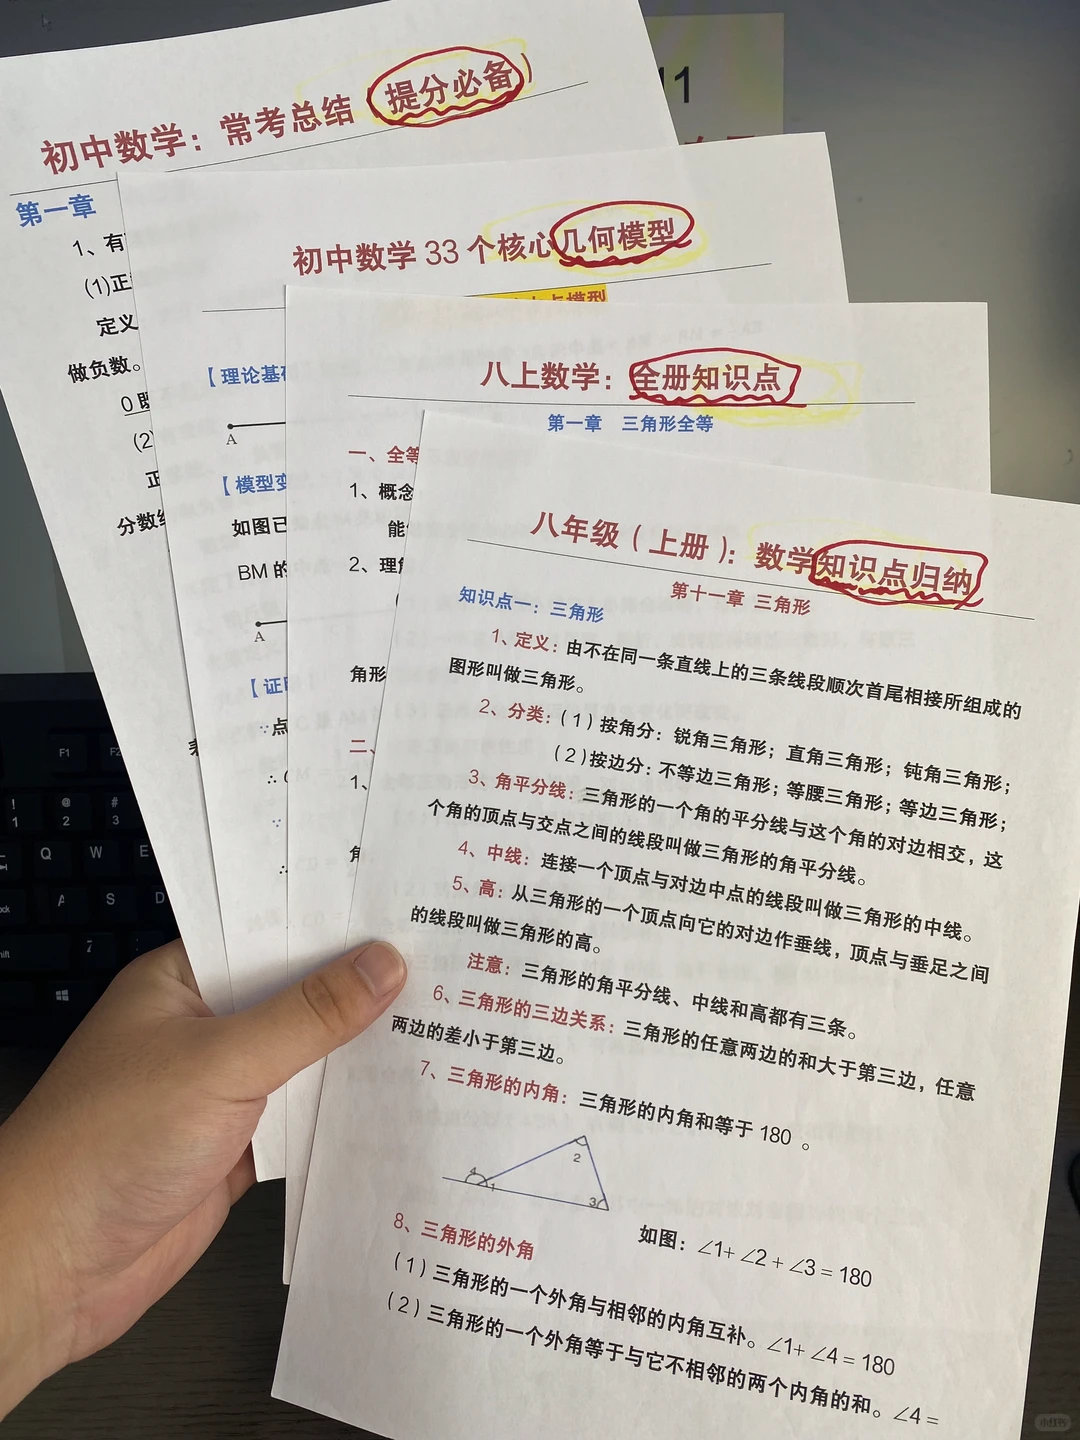 初中数学：常考总结（提分必备）
第一章
1、有
(1)正
定义
做负数。
0既
(2)
正
分数
初中数学 33 个核心几何模型
【理论基础
A
【模型变
如图已
BM 的
A
【证明
∵点
∴
∵
∴
八上数学：全册知识点
第一章 三角形全等
一、全等
1、概念
能
2、理解
角形
二、
1、
角
八年级（上册）：数学知识点归纳
第十一章 三角形
知识点一：三角形
1、定义：由不在同一条直线上的三条线段顺次首尾相接所组成的
图形叫做三角形。
2、分类：（1）按角分：锐角三角形；直角三角形；钝角三角形；
（2）按边分：不等边三角形；等腰三角形；等边三角形；
3、角平分线：三角形的一个角的平分线与这个角的对边相交，这
个角的顶点与交点之间的线段叫做三角形的角平分线。
4、中线：连接一个顶点与对边中点的线段叫做三角形的中线。
5、高：从三角形的一个顶点向它的对边作垂线，顶点与垂足之间
的线段叫做三角形的高。
注意：三角形的角平分线、中线和高都有三条。
6、三角形的三边关系：三角形的任意两边的和大于第三边，任意
两边的差小于第三边。
7、三角形的内角：三角形的内角和等于 180 。
2
4
1
3
如图：∠1+ ∠2 + ∠3 = 180
8、三角形的外角
（1）三角形的一个外角与相邻的内角互补。∠1+ ∠4 = 180
（2）三角形的一个外角等于与它不相邻的两个内角的和。∠4 =
F1 F2
! @ #
1 2 3
Q W E
A S D
7
小红书